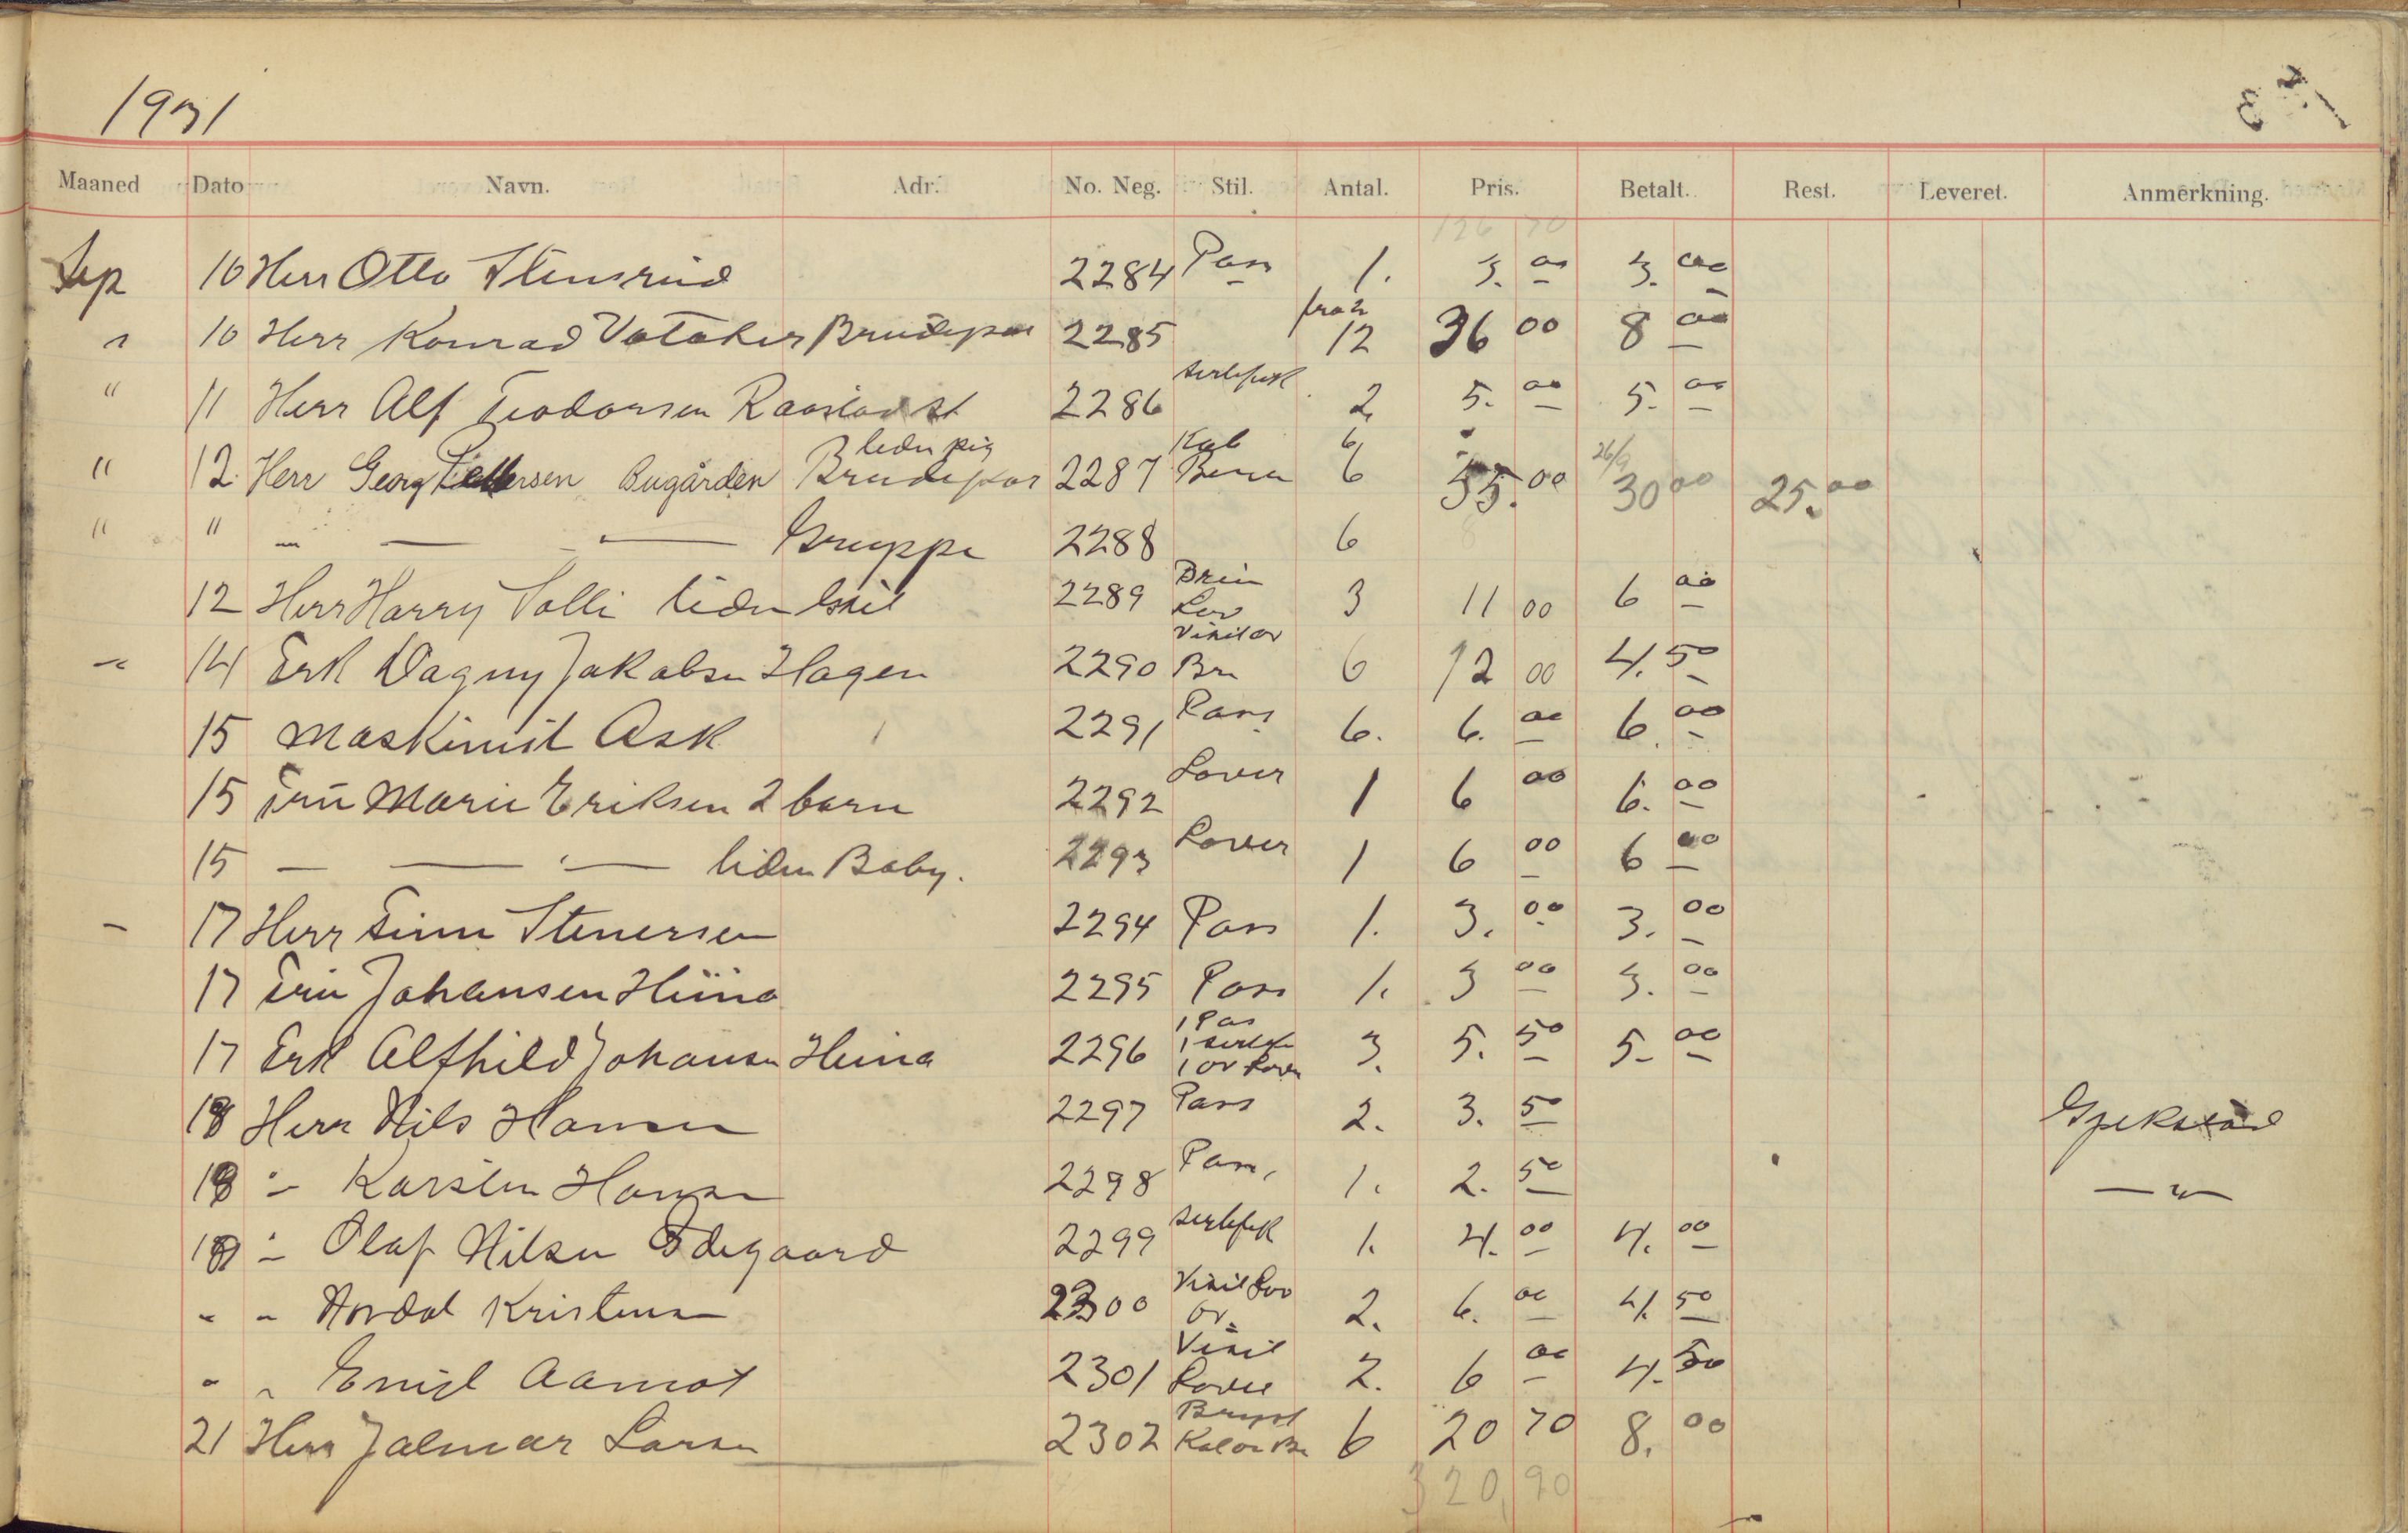 1931
Maaned Dato Navn. Adr. No. Neg. Stil. Antal. Pris. Betalt. Rest. Leveret. Anmerkning.
126 70
Sep 10 Herr Otto Stensrud 2284 Pass 1. 3. 00 3. 00
" 10 Herr Konrad Vataker Brudepar 2285 12 36 00 8 00
" 11 Herr Alf Teodorsen Raastad st 2286 sertefik 2 5. 00 5. 00
" 12. Herr Georg Pettersen Bugården Brudepar liden pig 2287 Kab Brun 6 6 55. 00 26/9 30 00 25. 00
" " — — — Gruppe 2288 6
12 Herr Harry Solli liden 2289 Lov 3 11 00 6 00
" 14 Frk Dagny Jakobsen Hagen 2290 Visit ov Br 6 12 00 4. 50
15 Maskinist Ask 2291 Pass 6. 6. 00 6. 00
15 Fru Marie Eriksen 2 barn 2292 Lover 1 6 00 6. 00
15 — — " — liden Baby. 2293 Lover 1 6 00 6 00
" 17 Herr Finn Stenersen 2294 Pass 1. 3. 00 3. 00
17 Fru Johansen Huna 2295 Pass 1. 3 00 3. 00
17 Frk Alfhild Johansen Huna 2296 1 Pas 1 sertefi 1 ov Lover 3. 5. 50 5. 00
18 Herr Nils Hansen 2297 Pass 2. 3. 50 Gjekstad
18 " Karsten Hansen 2298 Pass, 1. 2. 50 — " —
18 " Olaf Nilsen Ødegaard 2299 sertefik 1. 4. 00 4. 00
" " Arvdal Kristensen 2300 Visit Lov ov 2. 6. 00 4. 50
" " Emil Aamot 2301 Visit Lover 2. 6 00 4. 50
21 Herr Jalmar Larsen 2302 Bryst Kal ov Br 6 20 70 8. 00
320,90